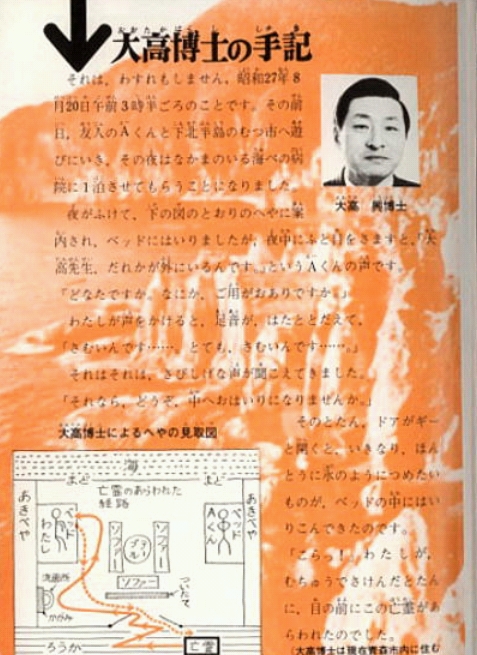 大高博士の手記
それは、わすれもしません、昭和27年8
月20日午前3時半ごろのことです。その前
日、友人のAくんと下北半島のむつ市へ遊
びにいき、その夜はなかまのいる海べの病
院に1泊させてもらうことになりました。
夜がふけて、下の図のとおりのへやに案
内され、ベッドにはいりましたが、夜中にふと目をさますと、「大
高先生、だれかが外にいるんです。」というAくんの声です。
「どなたですか。なにか、ご用がおありですか。」
わたしが声をかけると、足音が、はたととだえて、
「さむいんです……、とても、さむいんです……。」
それはそれは、さびしげな声が聞こえてきました。
「それなら、どうぞ、中へおはいりになりませんか。」
そのとたん、ドアがギー
と開くと、いきなり、ほん
とうに氷のようにつめたい
ものが、ベッドの中にはい
りこんできたのです。
「こらっ!」わたしが、
むちゅうでさけんだとたん
に、目の前にこの亡霊があ
らわれたのでした。
(大高博士は現在青森市内に住む
大高 興博士
大高博士によるへやの見取図
海
まど
まど
亡霊のあらわれた
経路
あきべや
ベッド
わたし
ソファー
テーブル
ソファー
ベッド
Aくん
あきべや
ソファー
ついたて
洗面所
かがみ
ろうか
亡霊